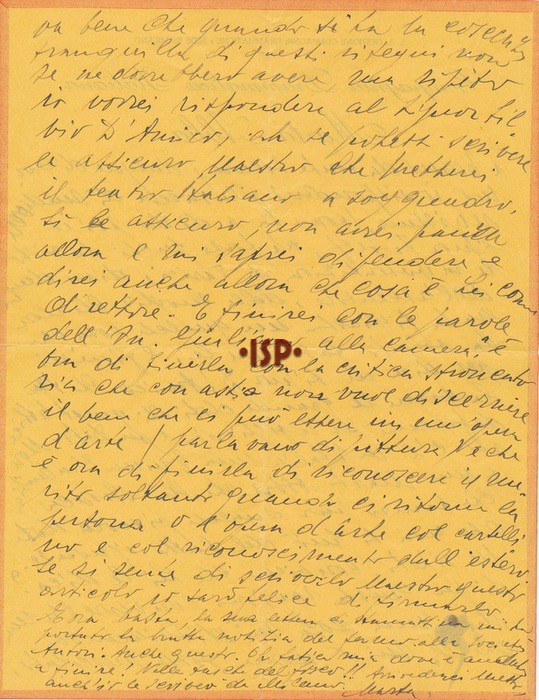 va bene che quando si ha la coscienza
tranquilla di questi ritegni non
se ne dovrebbero avere, ma ripeto
io vorrei rispondere al Signor Sil
vio D'Amico, ah se potessi scrivere
le assicuro Maestro che metterei
il teatro Italiano a soqquadro,
Si le assicuro, non avrei paura
allora e mi saprei difendere e
direi anche allora che cosa è Lei come
direttore. E finirei con le parole
dell'On. alla camera: "è
ora di finirla con la critica stroncato
ria che con astio non vuol discernere
il bene che ci può essere in un'opera
d'arte (parlavano di pittura) e che
è ora di finirla di riconoscere il me
rito soltanto quando ci ritorna la
persona o l'opera d'arte col cartelli
no e col riconoscimento dall'estero
Se si sente di scriverlo Maestro questo
articolo io sarò felice di firmarlo.
E ora basta, la sua lettera mi ha
portato la brutta notizia del fermo alla Società
Autori. Anche questo. Oh fatica mia dove è andata
a finire! Nelle tasche del fisco!! Arrivederci Maestro
anch'io le scriverò da Milano. Marta
·ISP·